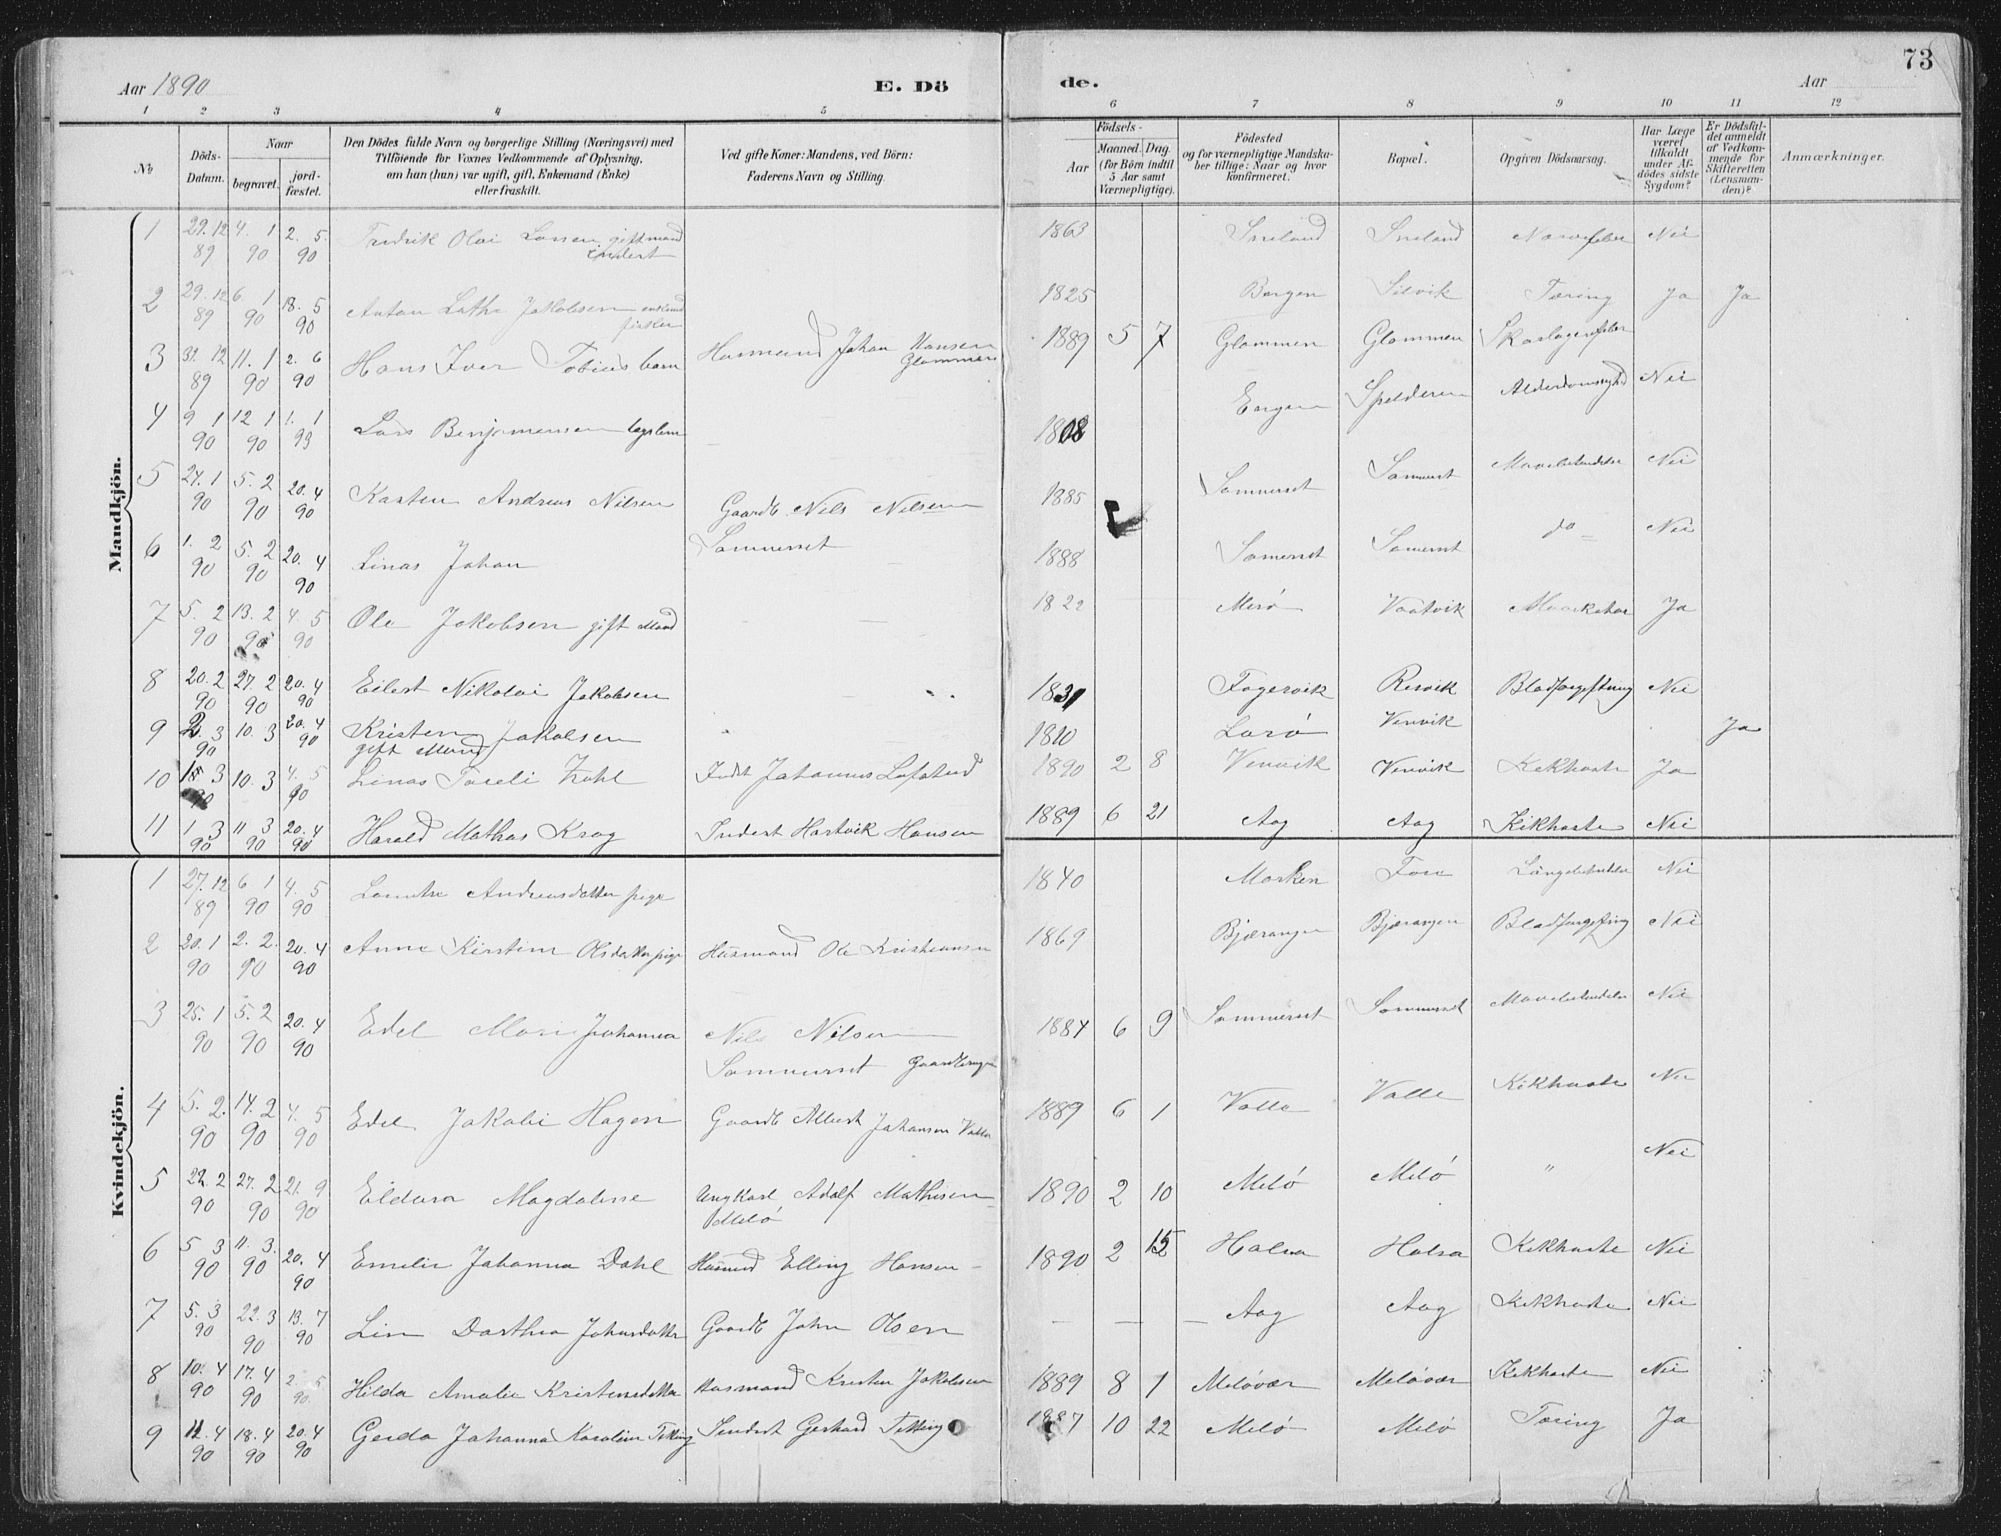 73
Aar 1890
E. Dö
de.
Aar
1 2 3 4 5 6 7 8 9 10 11 12
No
Döds-Datum.
Naar
begravet.
jord-fæstet.
Den Dödes fulde Navn og borgerlige Stilling (Næringsvei) med
Tilföiende for Voxnes Vedkommende af Oplysning,
om han (hun) var ugift, gift, Enkemand (Enke)
eller fraskilt.
Ved gifte Koner: Mandens, ved Börn:
Faderens Navn og Stilling.
Födsels-
Aar
Maaned. Dag.
(for Börn indtil
5 Aar samt
Værnepligtige).
Födested
og for værnepligtige Mandska-
ber tillige: Naar og hvor
konfirmeret.
Bopæl.
Opgiven Dödsaarsag.
Har Læge
været
tilkaldt
under Af-
dödes sidste
Sygdom?
Er Dödsfal-
det anmeldt
af Vedkom-
mende for
Skifteretten
(Lensman-
den)?
Anmærkninger.
Mandkjön.
1 29. 12 89 4. 1 90 2. 5. 90 Fredrik Olai Larsen gift mand inderst 1863 Nei
2 29. 12 89 6 1 90 18. 5 90 Anton Jakobsen fisker 1825 Bergen Selvik Tæring Ja Ja
3 31. 12 89 11. 1 90 2. 6 90 Hans Iver Tobius barn Husmand Johan Hansen Glommen 1889 5 7 Glommen Glommen Skarlagensfeber
4 9 1 90 12 1 90 1. 1 93 Lars Benjaminsen 1808 Engen Spilderen Nei
5 27. 1 90 5. 2 90 20. 4 90 Karsten Andreas Nilsen Gaardb. Nils Nilsen 1885 Sommerset Somerset Nei
6 1. 2 90 5. 2 90 20. 4 90 Linas Johan Sommerset 1888 Somerset Somerset do Nei
7 5. 2 90 13. 2 90 4. 5 90 Ole Jakobsen gift Mand 1822 Ja
8 20. 2 90 27. 2 90 20. 4 90 Eilert Nikolai Jakobsen 1831 Fagervik Resvik Blodforgiftning Nei
9 2. 3 90 10. 3 20. 4 90 Kristen Jakobsen gift Mand 1810 Venvik Ja
10 3 90 10. 3 4. 5 90 Linas Toreli Zahl Indst Johannes 1890 2 8 Venvik Venvik Kikhoste Ja
11 1 3 90 11 3 90 20. 4 90 Harald Mathas Krag Inderst Hartvik Hansen 1889 6 21 Aag Aag Kikhoste Nei
Kvindekjön.
1 27. 12 89 6 1 90 4. 5 90 Andreasdatter pige 1840 Marken Fore Nei
2 20. 1 90 2. 2. 90 20. 4 90 Anne Kirstine Olsdatter pige Husmand Ole Kristiansen 1869 Bjærangen Bjærangen Blodforgiftning Nei
3 25. 1 90 5. 2 90 20. 4 90 Edel Mari Johanna Nils Nilsen Sommerset Gaardbruger 1884 6 9 Sommerset Sommerset Nei
4 5. 2. 90 14. 2 90 4. 5 90 Edel Jakobi Hagen Gaardb Albert Johansen Valla 1889 6 1 Valla Valle Kikhoste Nei
5 22. 2 90 27. 2 90 21. 9 90 Eldora Magdalene Ungkarl Adolf Mathisen Melö 1890 2 10 Melö Melö " Nei
6 5 3 90 11. 3. 90 20. 4 90 Emilie Johanna Dahl Husmd Elling Hansen 1890 2 15 Halsa Halsa Kikhoste Nei
7 5. 3 90 22. 3 90 13. 7 90 Lin Dorthea Johnsdatter Gaardb John Olsen — — — Aag Aag Kikhoste Nei
8 10. 4 90 17. 4 90 2. 5 90. Hilda Amalie Kristensdatter Husmand Kristen Jakobsen 1889 8 1 Melövær Melövær Kikhoste Nei
9 11. 4 90 18. 4 90 20. 4 90 Gerda Johanna Karoline Tetting Inderst Gerhard Tetting 1887 10 22 Melö Melö Tæring Ja